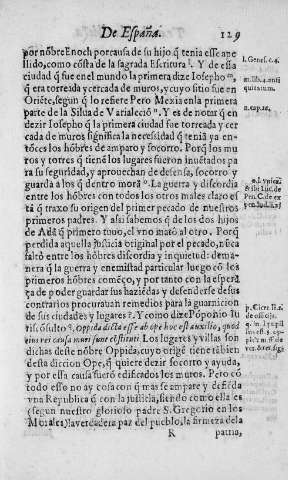 De España. 129
por nõbre Enoch por causa de su hijo q̃ tenia esse ape
llido, como cõsta de la sagrada Escritura l. Y de esta
ciudad q̃ fue en el mundo la primera dize Iosepho m,
q̃ era torreada y cercada de muros, cuyo sitio fue en
Oriẽte, segun q̃ lo refiere Pero Mexia en la primera
parte de la Silua de Varialeciõ n. Y es de notar q̃ en
dezir Iosepho q̃ la primera ciudad fue torreada y cer
cada de muros significa la necesidad q̃ tenia ya en-
tõces los hõbres de amparo y socorro. Porq̃ los mu
ros y torres q̃ tienẽ los lugares fueron inuẽtados pa
ra su seguridad, y aprouechan de defensa, socorro y
guarda a los q̃ dentro morã o. La guerra y discordia
entre los hõbres con todos los otros males claro es
tá q̃ traxo su origen del primer pecado de nuestros
primeros padres. Y assi sabemos q̃ de los dos hijos
de Adã q̃ primero tuuo, el vno matò al otro. Porq̃
perdida aquella justicia original por el pecado, nũca
faltò entre los hõbres discordia y inquietud: dema-
nera q̃ la guerra y enemistad particular luego cõ los
primeros hõbres comẽço, y por tanto con la esperã
ça de poder guardar sus haziẽdas y defenderse de sus
contrarios procurauan remedios para la guarnicion
de sus ciudades y lugares p. Y como dize Põponio Iu
riscõsulto q, Oppida dicta esse ab ope hoc est auxilio, quod
eius rei causa muri sunt cõstituti. Los lugares y villas son
dichas deste nõbre Oppida, cuyo origẽ tiene su deriu
desta diccion Ope, q̃ quiere dezir socorro y ayuda,
y por essa causa fuerõ edificados los muros. Pero cõ
todo esso no ay cosa con q̃ mas se ampare y defiẽda
vna Republica q̃ con la justicia, siendo como ella es
(segun nuestro glorioso padre S. Gregorio en los
Morales) la verdadera paz del pueblo, la firmeza de la
R patria,
l. Genes. c. 4.
m. lib. 1. anti
quitatum.
n. cap. 12.